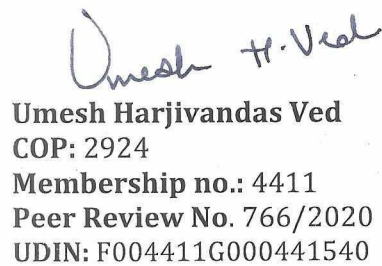 Umesh H. Ved
Umesh Harjivandas Ved
COP: 2924
Membership no.: 4411
Peer Review No. 766/2020
UDIN: F004411G000441540